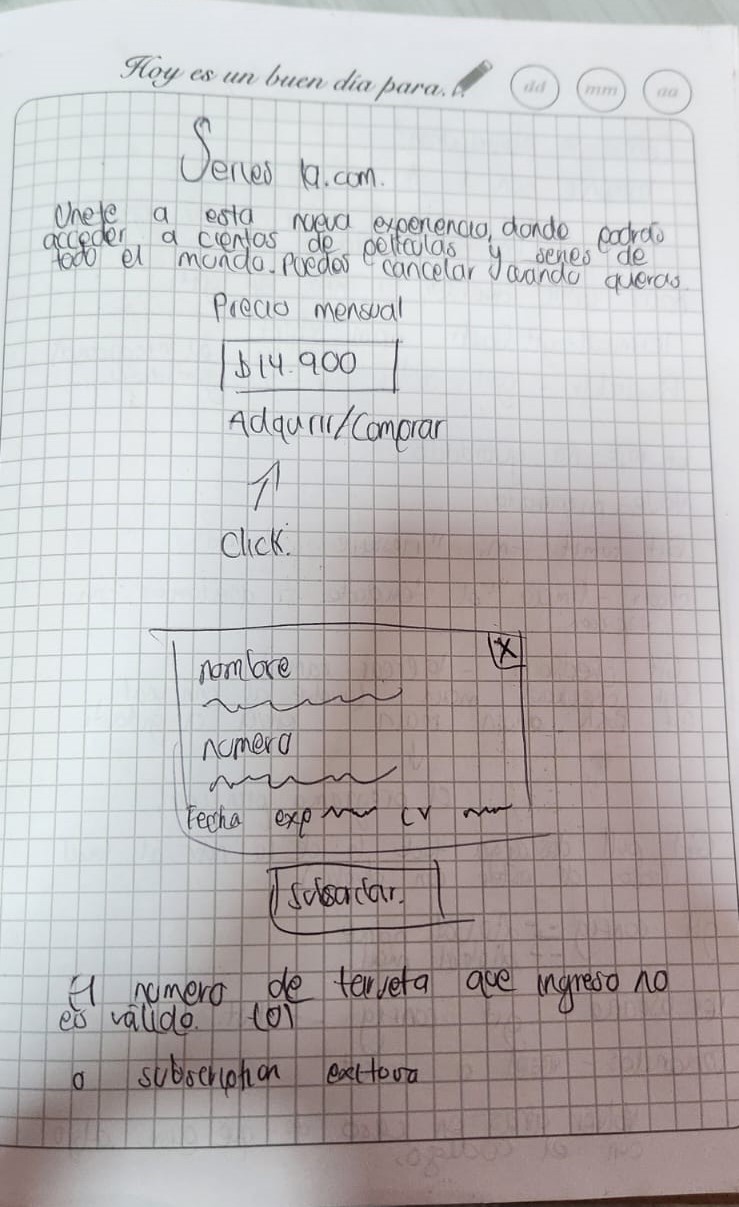 Hoy es un buen día para...
dd mm aa
Series la.com.
Unete a esta nueva experiencia, donde podrás
acceder a cientos de peliculas y series de
todo el mundo. Puedes cancelar cuando queras.
Precio mensual
$14.900
Adquirir/Comprar
Click.
X
nombre
numero
Fecha exp cv
Subscribir.
El numero de tarjeta que ingreso no
es válido. (o)
o subscription exitosa